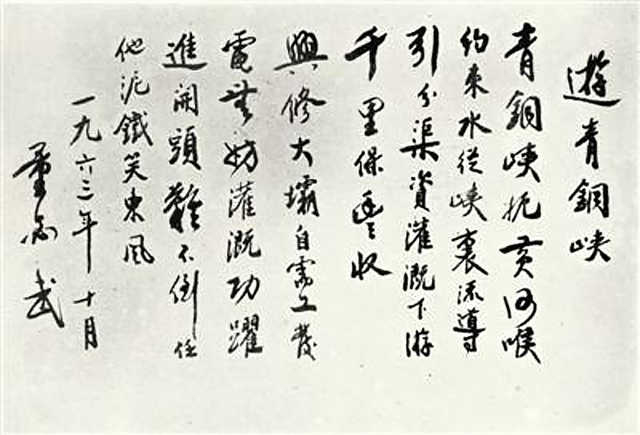 遊青銅峽
青銅峽扼黃河喉
約束水從峽裏流導
引分渠資灌溉下游
千里保豐收
興修大壩自需工發
電無妨灌溉功躍
進開頭難不倒任
他泥鐵笑東風
一九六三年十月
董必武